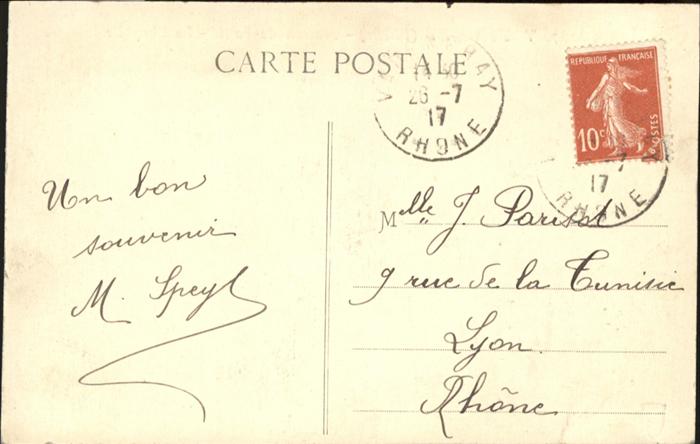 CARTE POSTALE
26 -7
17
RHONE
REPUBLIQUE FRANÇAISE
10c
POSTES
-7
17
RHONE
Un bon
souvenir
M.
Mlle J. Parisot
9 rue de la Tunisie
Lyon
Rhône